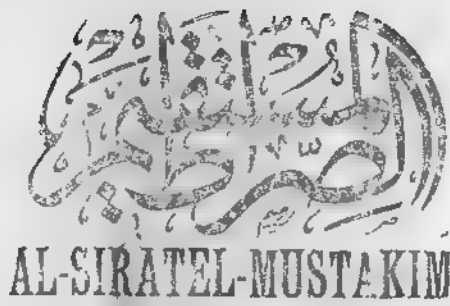 الصراط المستقيم
AL-SIRATEL-MUSTAKIM